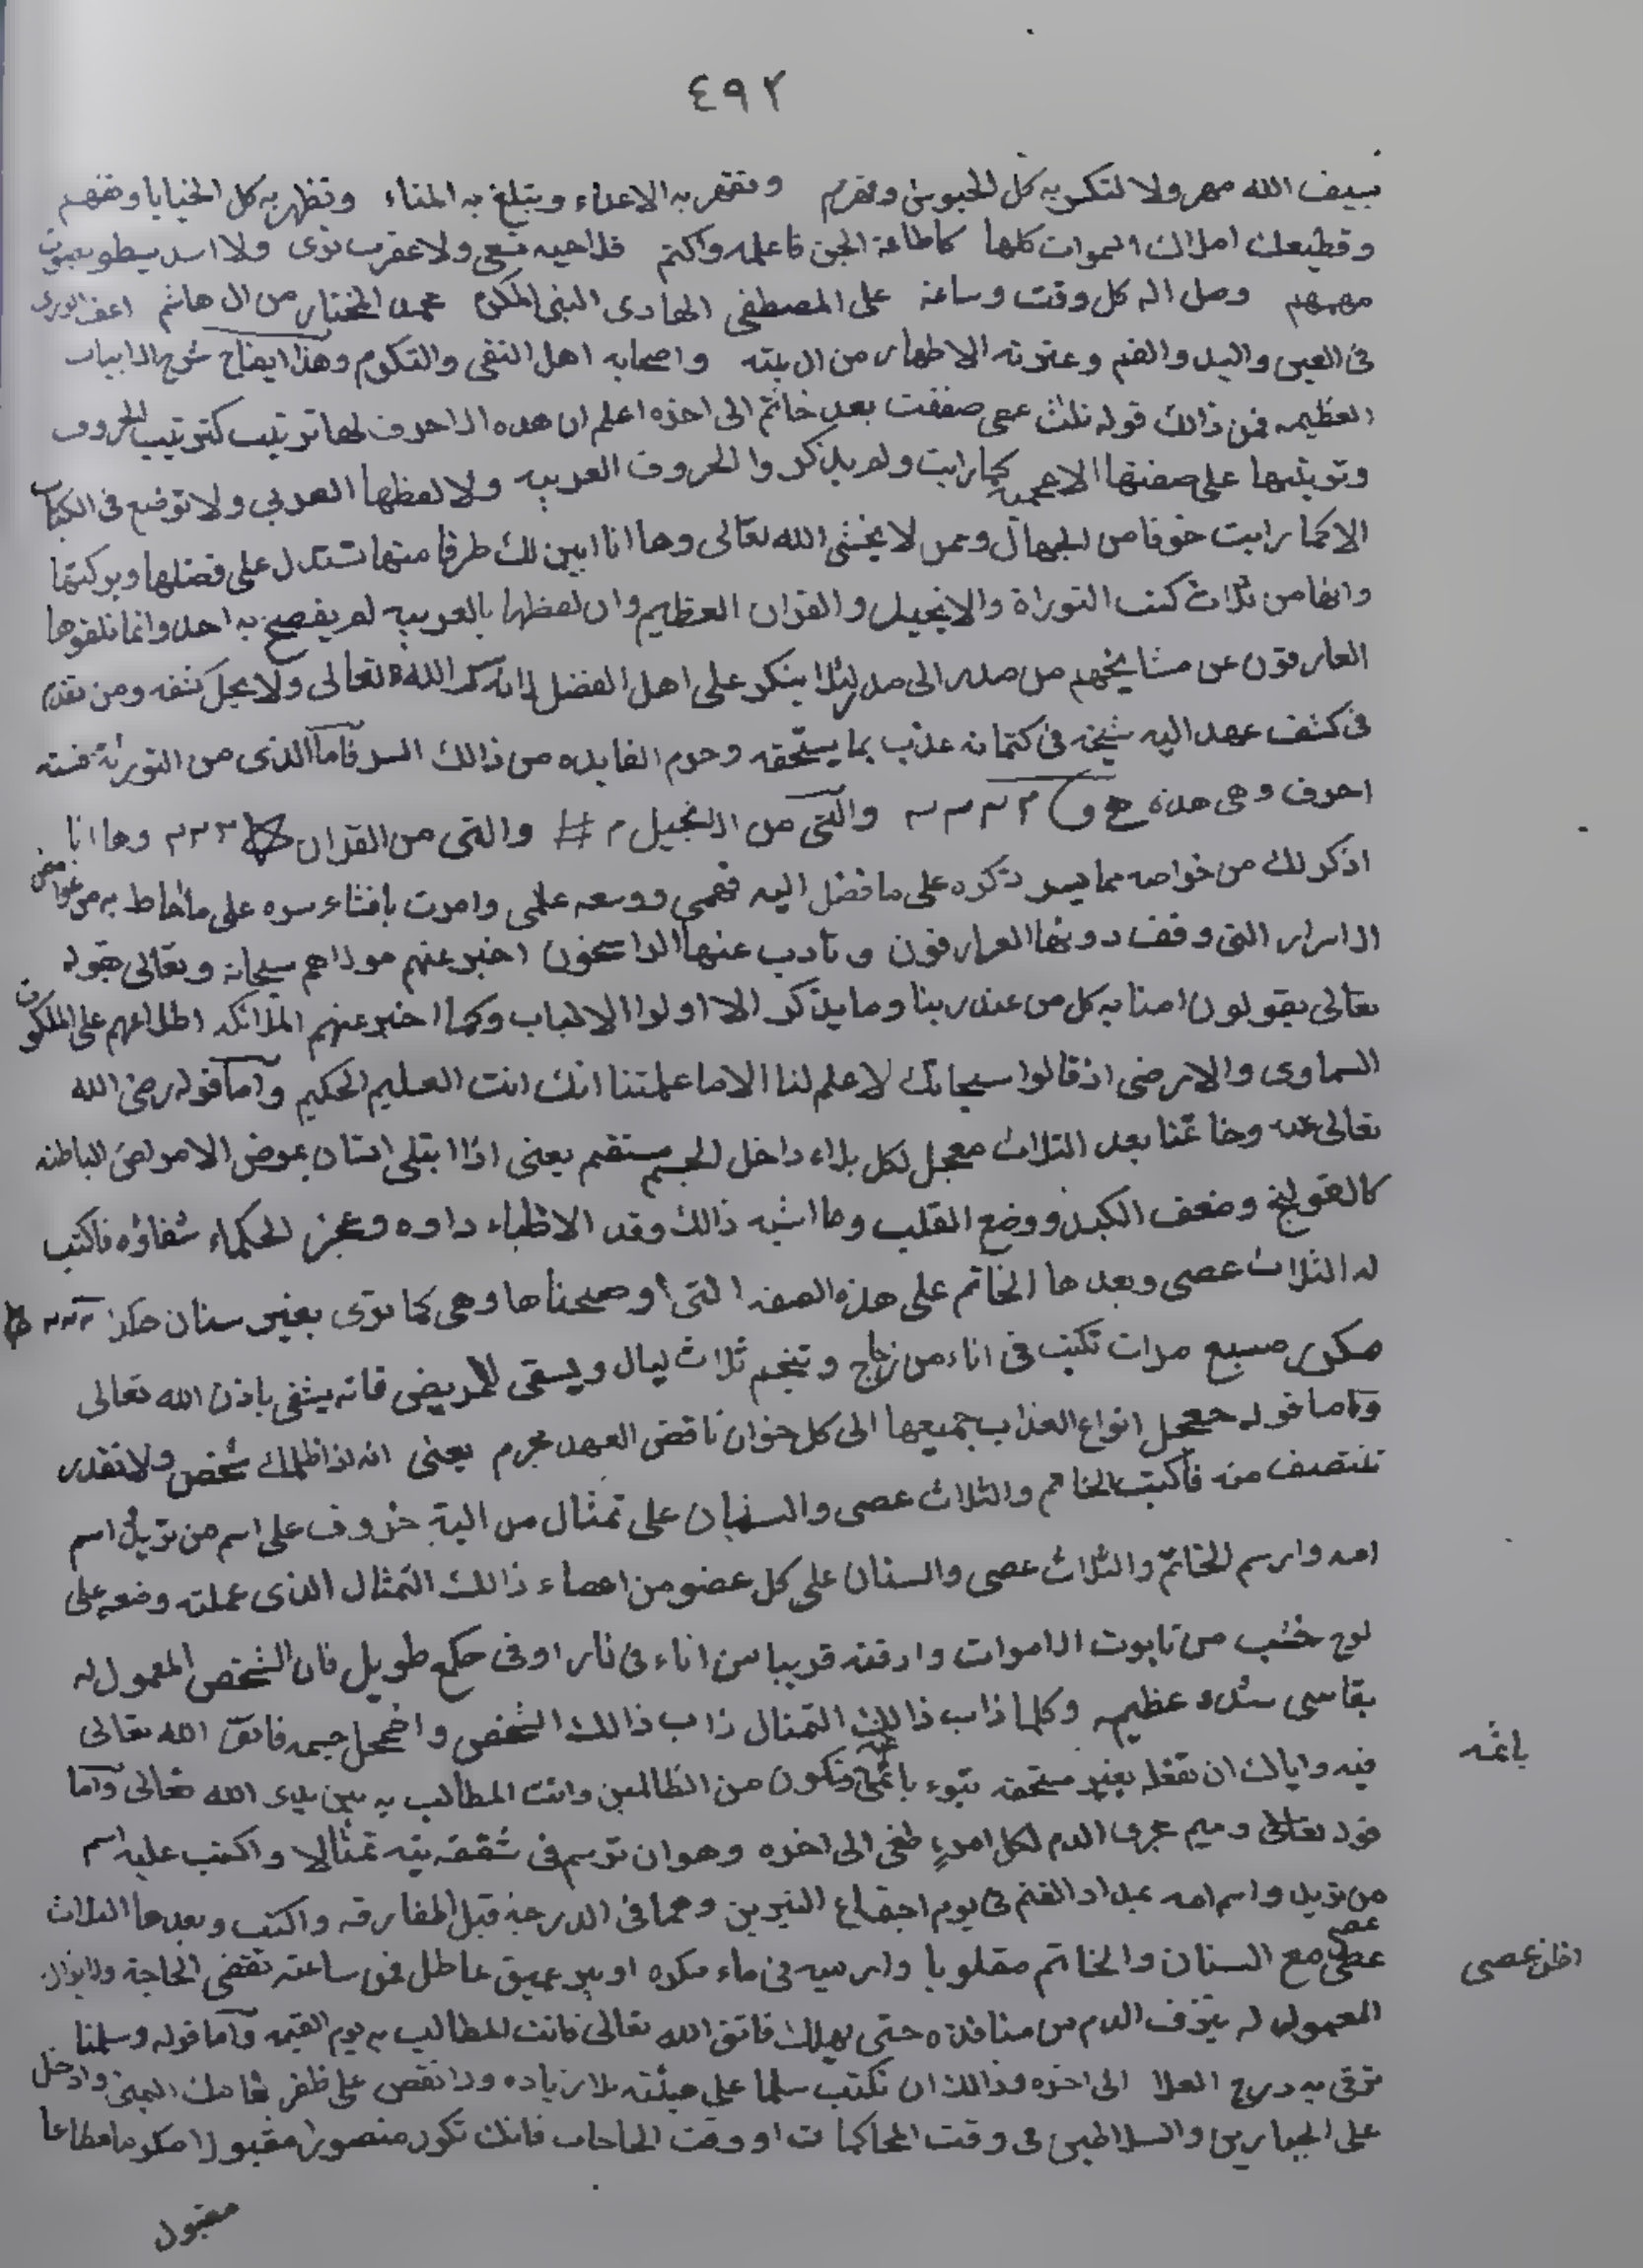 ٤٩٢
بسيف الله مهر ولا لتكسر به كل الجيوش وتقهر به الاعداء ويتبلغ به المناء وتظهر به كل الخبايا وتفهم
وتطيعك املاك السموات كلها كاطاعة الجن فاعلمه واكتم فلا حيه تسعى ولا عقرب ترى ولا اسد يسطو
مهمهم وصل اله كل وقت وساعة على المصطفى الهادى النبى المكرم محمد المختار من ال هاشم الورى
فى واليد والفم وعترته الاطهار من ال بيته واصحابه اهل التقى والتكرم وهذا ايضاح شرح الابيات
العظيمه فمن ذالك قوله ثلاث عصى صففت بعد خاتم الى اخره اعلم ان هده الاحرف لها ترتيب كترتيب الحروف
وترتيبها على صفتها الاعجميه كما رايت ولم يذكروا الحروف العربيه ولا لفظها العربي ولا توضع فى الكتاب
الا كما رايت خوفا من الجهال وممن لا يخشى الله تعالى وها انا ابين لك طرفا منها تستدل على فضلها وبركتها
وانها من ثلاث كتب التوراة والانجيل والقران العظيم وان لفظها بالعربيه لم يفصح به احد وانما تلقوها
العارفون عن مشايخهم من صدر الى صدر لئلا ينكر على اهل الفضل لانه سر الله تعالى ولا يحل كشفه ومن تعدا
فى كشف عهد اليه شيخه فى كتمانه عذب بما يستحقه وحرم الفايده من ذالك السر فاما الذى من التورية فسته
احرف وهى هدة والتى من الانجيل م # والتى من القران وها انا
اذكر لك من خواصه مما يسر ذكره على ما فضل اليه فهمى ووسعه علمى وامرت بافشاء سره على ما احاط به من غوامض
الاسرار التى وقف دونها العارفون وتادب عنها الراسخون اخبر عنهم مولاهم سبحانه وتعالى بقوله
تعالى يقولون امنا به كل من عند ربنا وما يذكر الا اولوا الالباب وكما اخبر عنهم الملائكه اطلاعهم على الملكوت
السماوى والارضى اذ قالوا سبحانك لا علم لنا الا ما علمتنا انك انت العليم الحكيم واما قوله رضى الله
تعالى عنه وخاتمنا بعد الثلاث معجل لكل بلاء داخل الجسم مستقم يعنى اذا ابتلى انسان بموض الامراض الباطنه
كالقولنج وضعف الكبد ووضع القلب وما اشبه ذالك وقد الاطباء داوه وعجز الحكماء شفاؤه فاكتب
له الثلاث عصى وبعدها الخاتم على هذه الصفه التى اوضحناها وهى كما ترى بغير سنان هكذا
مكرر سبع مرات تكتب فى اناء من زجاج وتنجم ثلاث ليال ويسقى للمريض فانه يشفى باذن الله تعالى
واما قوله معجل انواع العذاب جميعها الى كل خوان ناقض العهد مجرم يعنى انه اذا ظلمك شخص ولا تقدر
تنتصف منه فاكتب الخاتم والثلاث عصى والسنان على تمثال من الية خروف على اسم من تريد واسم
امه وارسم الخاتم والثلاث عصى والسنان على كل عضو من اعضاء ذالك التمثال الذى عملته وضعه على
لوح خشب من تابوت الاموات وادفنه قريبا من اناء فى نار اوفى طويل فان الشخص المعمول له
يقاسى شده عظيمه وكلما ذاب ذالك التمثال ذاب ذالك الشخص واضمحل جسمه فاتق الله تعالى
فيه واياك ان تفعله بغير مستحقه تبوء باثمه وتكون من الظالمين وانت المطالب به بين يدى الله تعالى واما
قوله تعالى وميم مجرى الدم لكل امرء طغى الى اخره وهو ان ترسم فى شقفه نيه تمثالا واكتب عليه اسم
من تريد واسم امه بمداد الفنم فى يوم اجتماع النيرين وهما فى الدرجة قبل المفارقه واكتب وبعدها الثلاث
عصى مع السنان والخاتم مقلوبا وارميه فى ماء مكره او بير عميق عاطل فمن ساعته تقضى الحاجة ولا يزال
المعمول له ينزف الدم من منافذه حتى يهلك فاتق الله تعالى فانت المطالب به يوم القيمه واما قوله وسلمنا
ترقى به درج العلا الى اخره وذالك ان تكتب سلما على هيئته بلا زياده ولا نقص على ظفر اليمنى وادخل
على الجبارين والسلاطين فى وقت المحاكمات او وقت الحاجات فانك تكون منصورا مقبولا مكرما مطاعا
مقبول
باثمه
اظن عصى